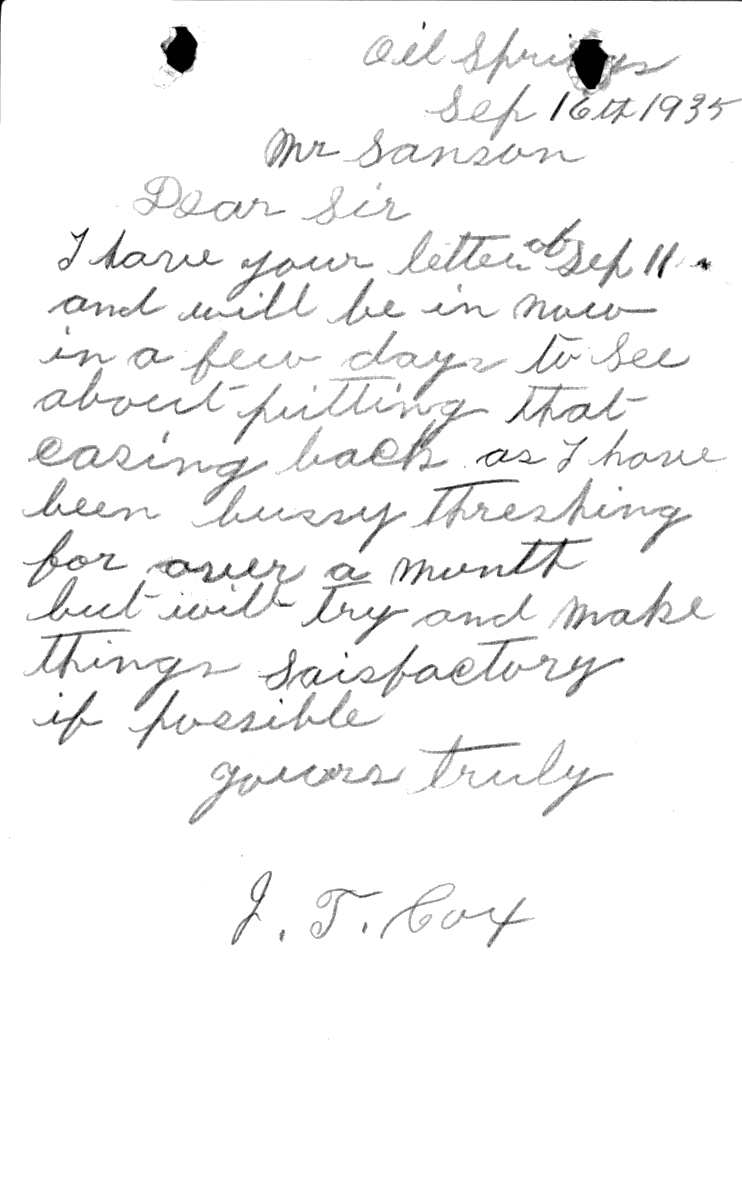 Oil Springs
Sep 16th 1935
Mr Sanson
Dear Sir
I have your letter of Sep 11.
and will be in now
in a few days to See
about putting that
casing back as I have
been bussy threshing
for over a month
but will try and make
things Saisfactory
if possible
yours truly
J. T. Cox